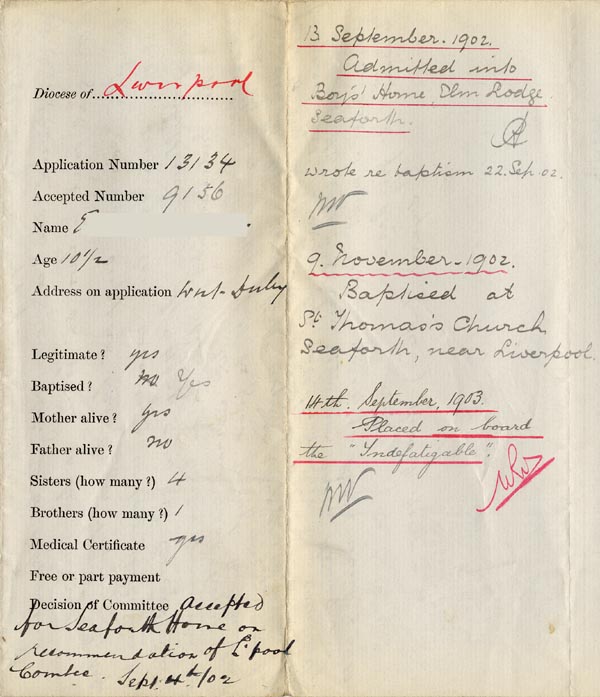 Diocese of Liverpool
Application Number 13134
Accepted Number 9156
Name E
Age 10 1/2
Address on application West Derby
Legitimate? yes
Baptised? no Yes
Mother alive? yes
Father alive? no
Sisters (how many?) 4
Brothers (how many?) 1
Medical Certificate yes
Free or part payment
Decision of Committee Accepted
for Seaforth Home on
recommendation of L'pool
Comtee. Sept. 4th/02
13 September. 1902.
Admitted into
Boys' Home, Elm Lodge.
Seaforth.
wrote re baptism 22. Sep. 02.
9. November. 1902.
Baptised at
St. Thomas's Church
Seaforth, near Liverpool.
14th. September, 1903.
Placed on board
the "Indefatigable".